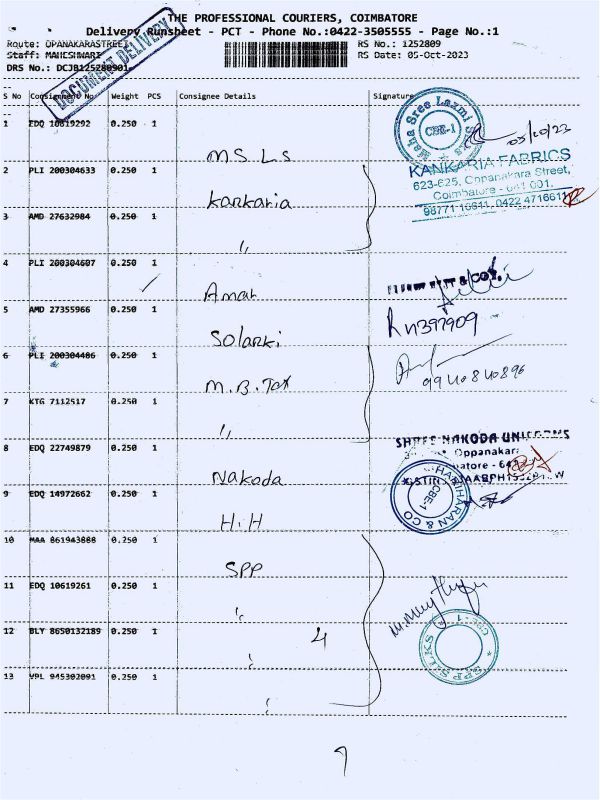 THE PROFESSIONAL COURIERS, COIMBATORE
Delivery Runsheet - PCT - Phone No.:0422-3505555 - Page No.:1
Route: OPANAKARASTREET
RS No.: 1252809
Staff: MAHESHWARI
RS Date: 05-Oct-2023
DRS No.: DCJB125280901
DOCUMENT DELIVERY
S No Consignment No Weight PCS Consignee Details Signature
1 EDQ 10619292 0.250 1 M.S.LS
Maha Sree Laxmi CBE-1
05/10/23
2 PLI 200304633 0.250 1 Kankaria
KANKARIA FABRICS
623-625, Oppanakara Street,
Coimbatore - 641 001.
0422 4716611
3 AMD 27632984 0.250 1 "
4 PLI 200304607 0.250 1 Amar
& CO.
5 AMD 27355966 0.250 1 Solanki
6 PLI 200304486 0.250 1 M.B.Tex
9940840896
7 KTG 7112517 0.250 1 "
8 EDQ 22749879 0.250 1 Nakoda
SHREE NAKODA UNIFORMS
Oppanakara
9 EDQ 14972662 0.250 1 H.H
HARIHARAN & CO
CBE-1
10 MAA 861943888 0.250 1 SPP
11 EDQ 10619261 0.250 1 "
12 BLY 8650132189 0.250 1 "
4
SPP SILKS CBE-1
13 VPL 945302091 0.250 1 "
9